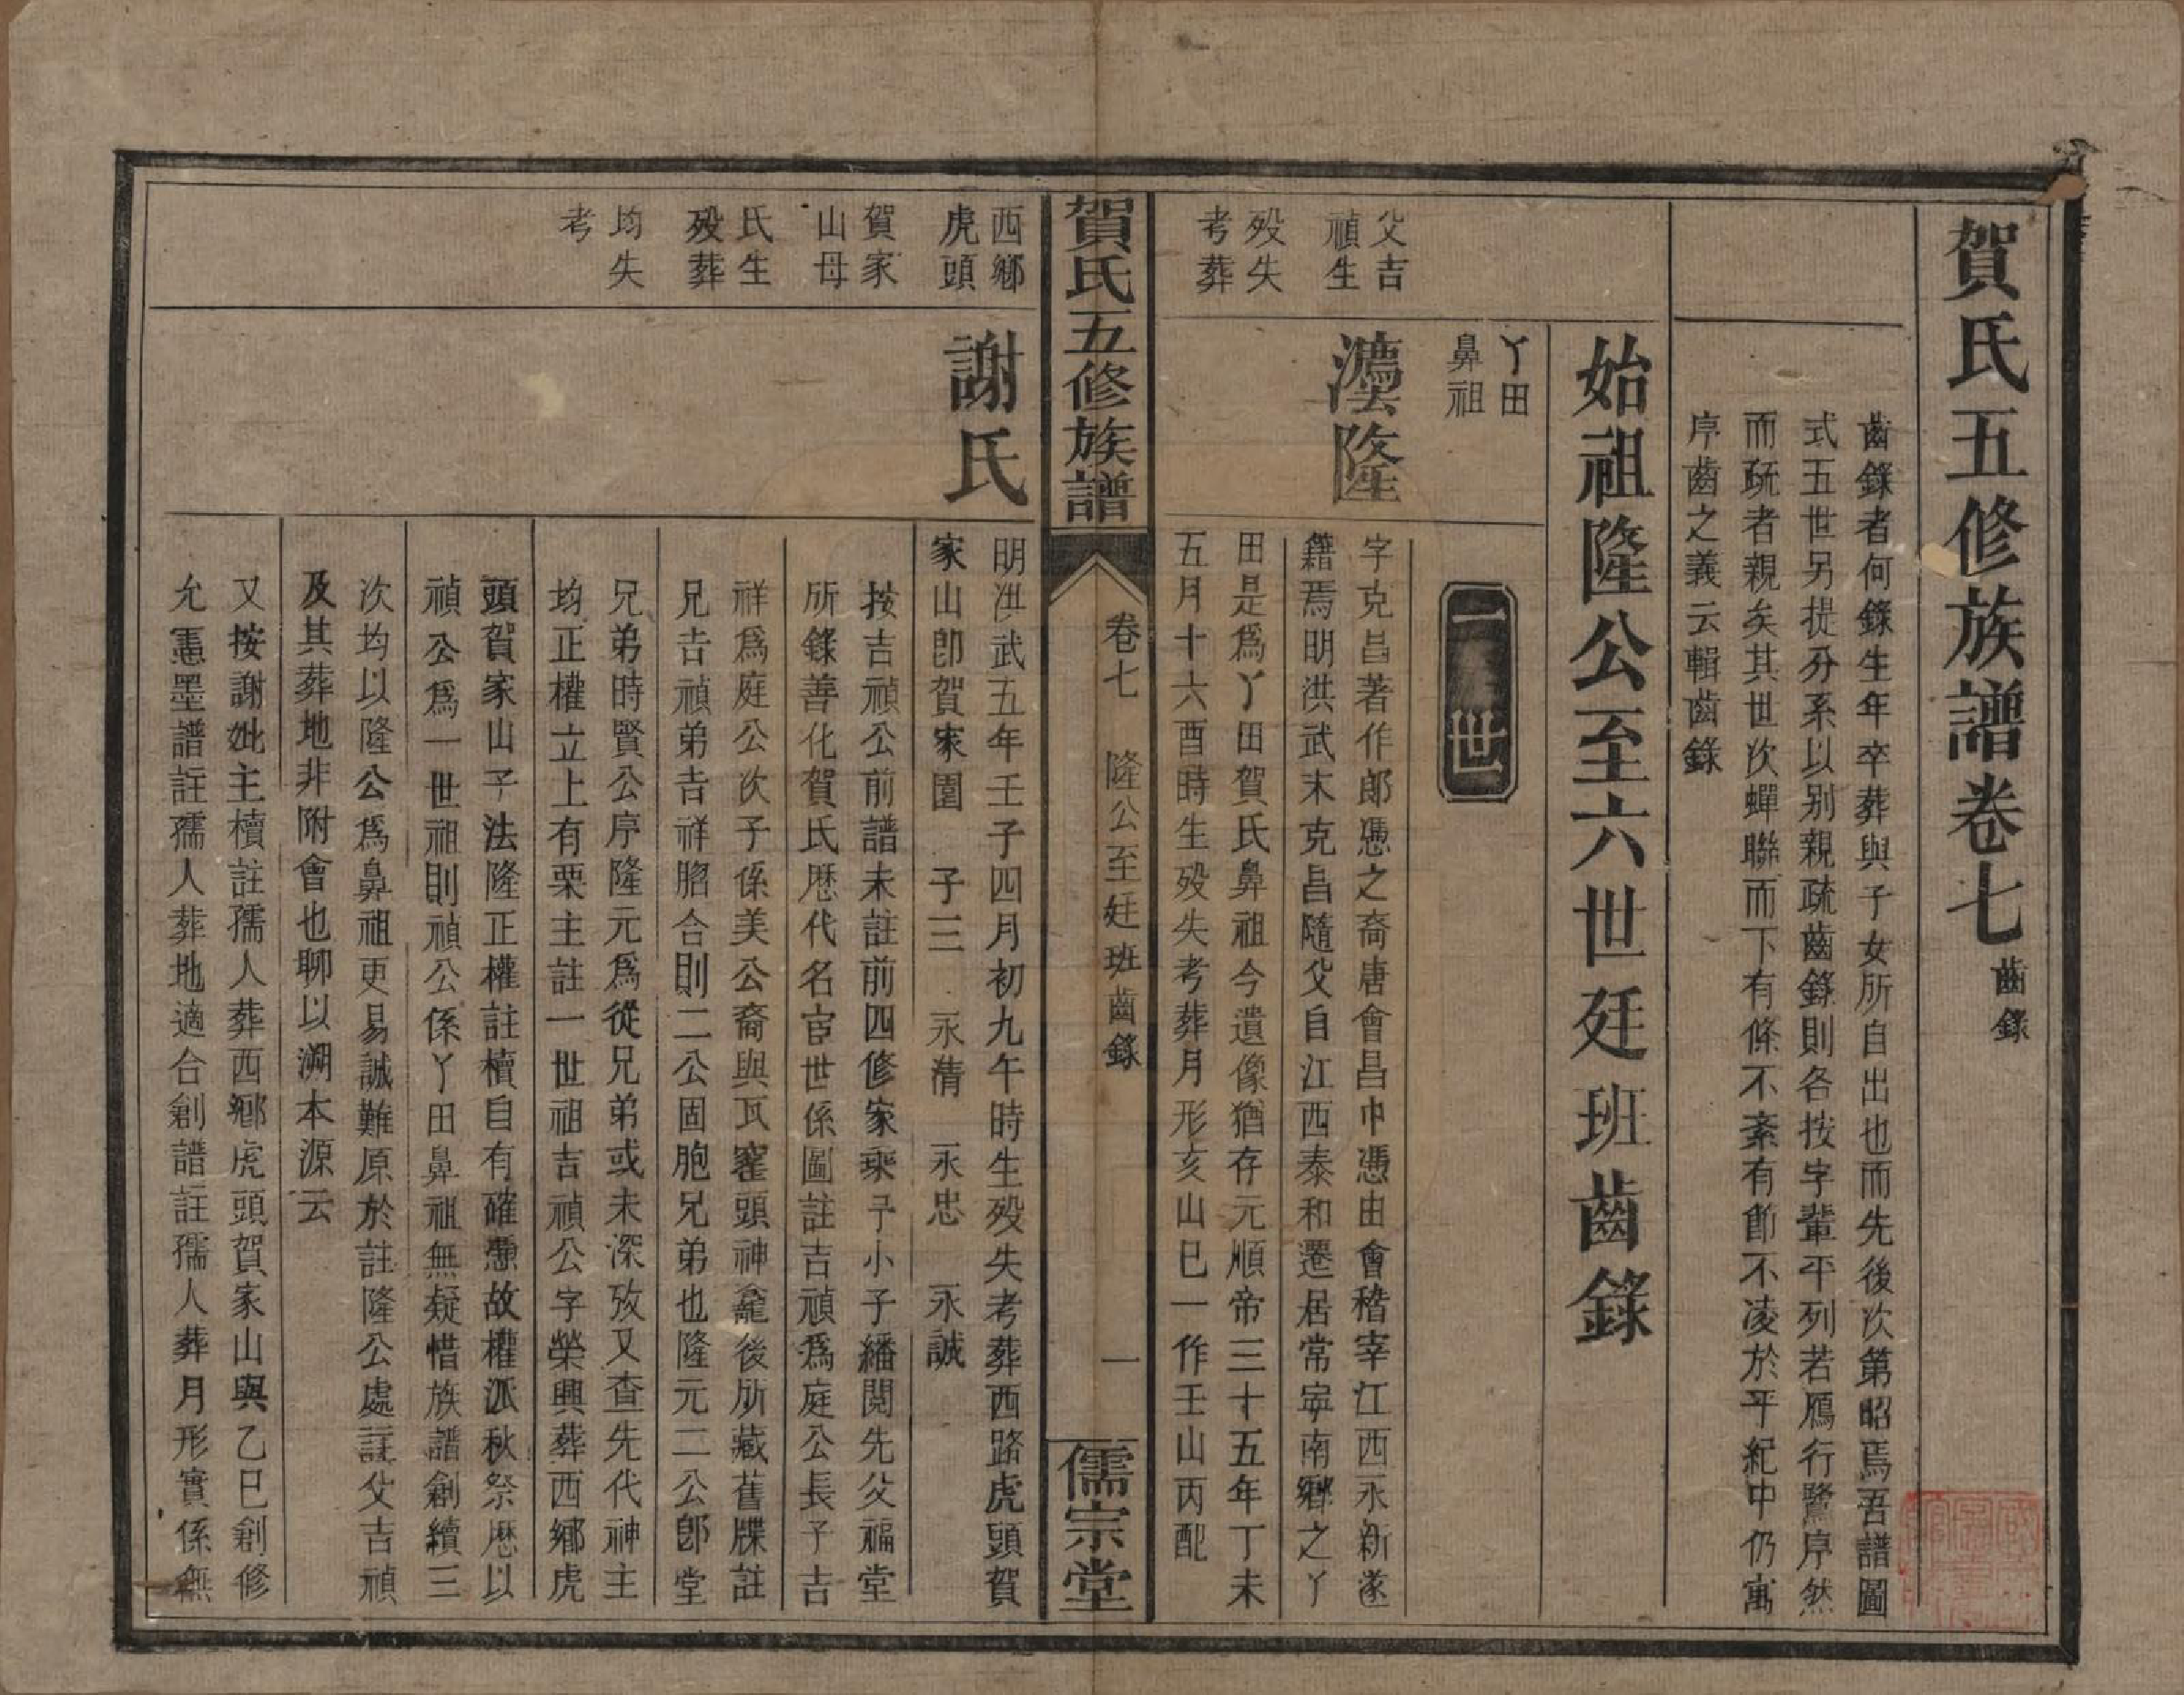 賀氏五修族譜卷七 齒錄
齒錄者何錄生年卒葬與子女所自出也而先後次第昭焉吾譜圖
式五世另提分系以别親疏齒錄則各按字輩平列若鴈行鷺序然
而疏者親矣其世次蟬聯而下有條不紊有節不凌於平紀中仍寓
序齒之義云輯齒錄
始祖隆公至六世廷班齒錄
一世
丫田
鼻祖
父吉
禎生
殁失
考葬
法隆
字克昌著作郎憑之裔唐會昌中憑由會稽宰江西永新遂
籍焉明洪武末克昌隨父自江西泰和遷居常寧南鄉之丫
田是爲丫田賀氏鼻祖今遺像猶存元順帝三十五年丁未
五月十六酉時生殁失考葬月形亥山巳一作壬山丙配
賀氏五修族譜
卷七 隆公至廷班齒錄
一
儒宗堂
西鄉
虎頭
賀家
山母
氏生
殁葬
均失
考
謝氏
明洪武五年壬子四月初九午時生殁失考葬西路虎頭賀
家山卽賀家園 子三 永清 永忠 永誠
按吉禎公前譜未註前四修家乘予小子繙閱先父福堂
所錄善化賀氏歷代名宦世係圖註吉禎爲庭公長子吉
祥爲庭公次子係美公裔與瓦窰頭神龕後所藏舊牒註
兄吉禎弟吉祥脗合則二公固胞兄弟也隆元二公卽堂
兄弟時賢公序隆元爲從兄弟或未深攷又查先代神主
均正權立上有栗主註一世祖吉禎公字榮興葬西鄉虎
頭賀家山子法隆正權註櫝自有確憑故權派秋祭歷以
禎公爲一世祖則禎公係丫田鼻祖無疑惜族譜創續三
次均以隆公爲鼻祖更易誠難原於註隆公處註父吉禎
及其葬地非附會也聊以溯本源云
又按謝妣主櫝註孺人葬西鄉虎頭賀家山與乙巳創修
允憲墨譜註孺人葬地適合創譜註孺人葬月形實係無